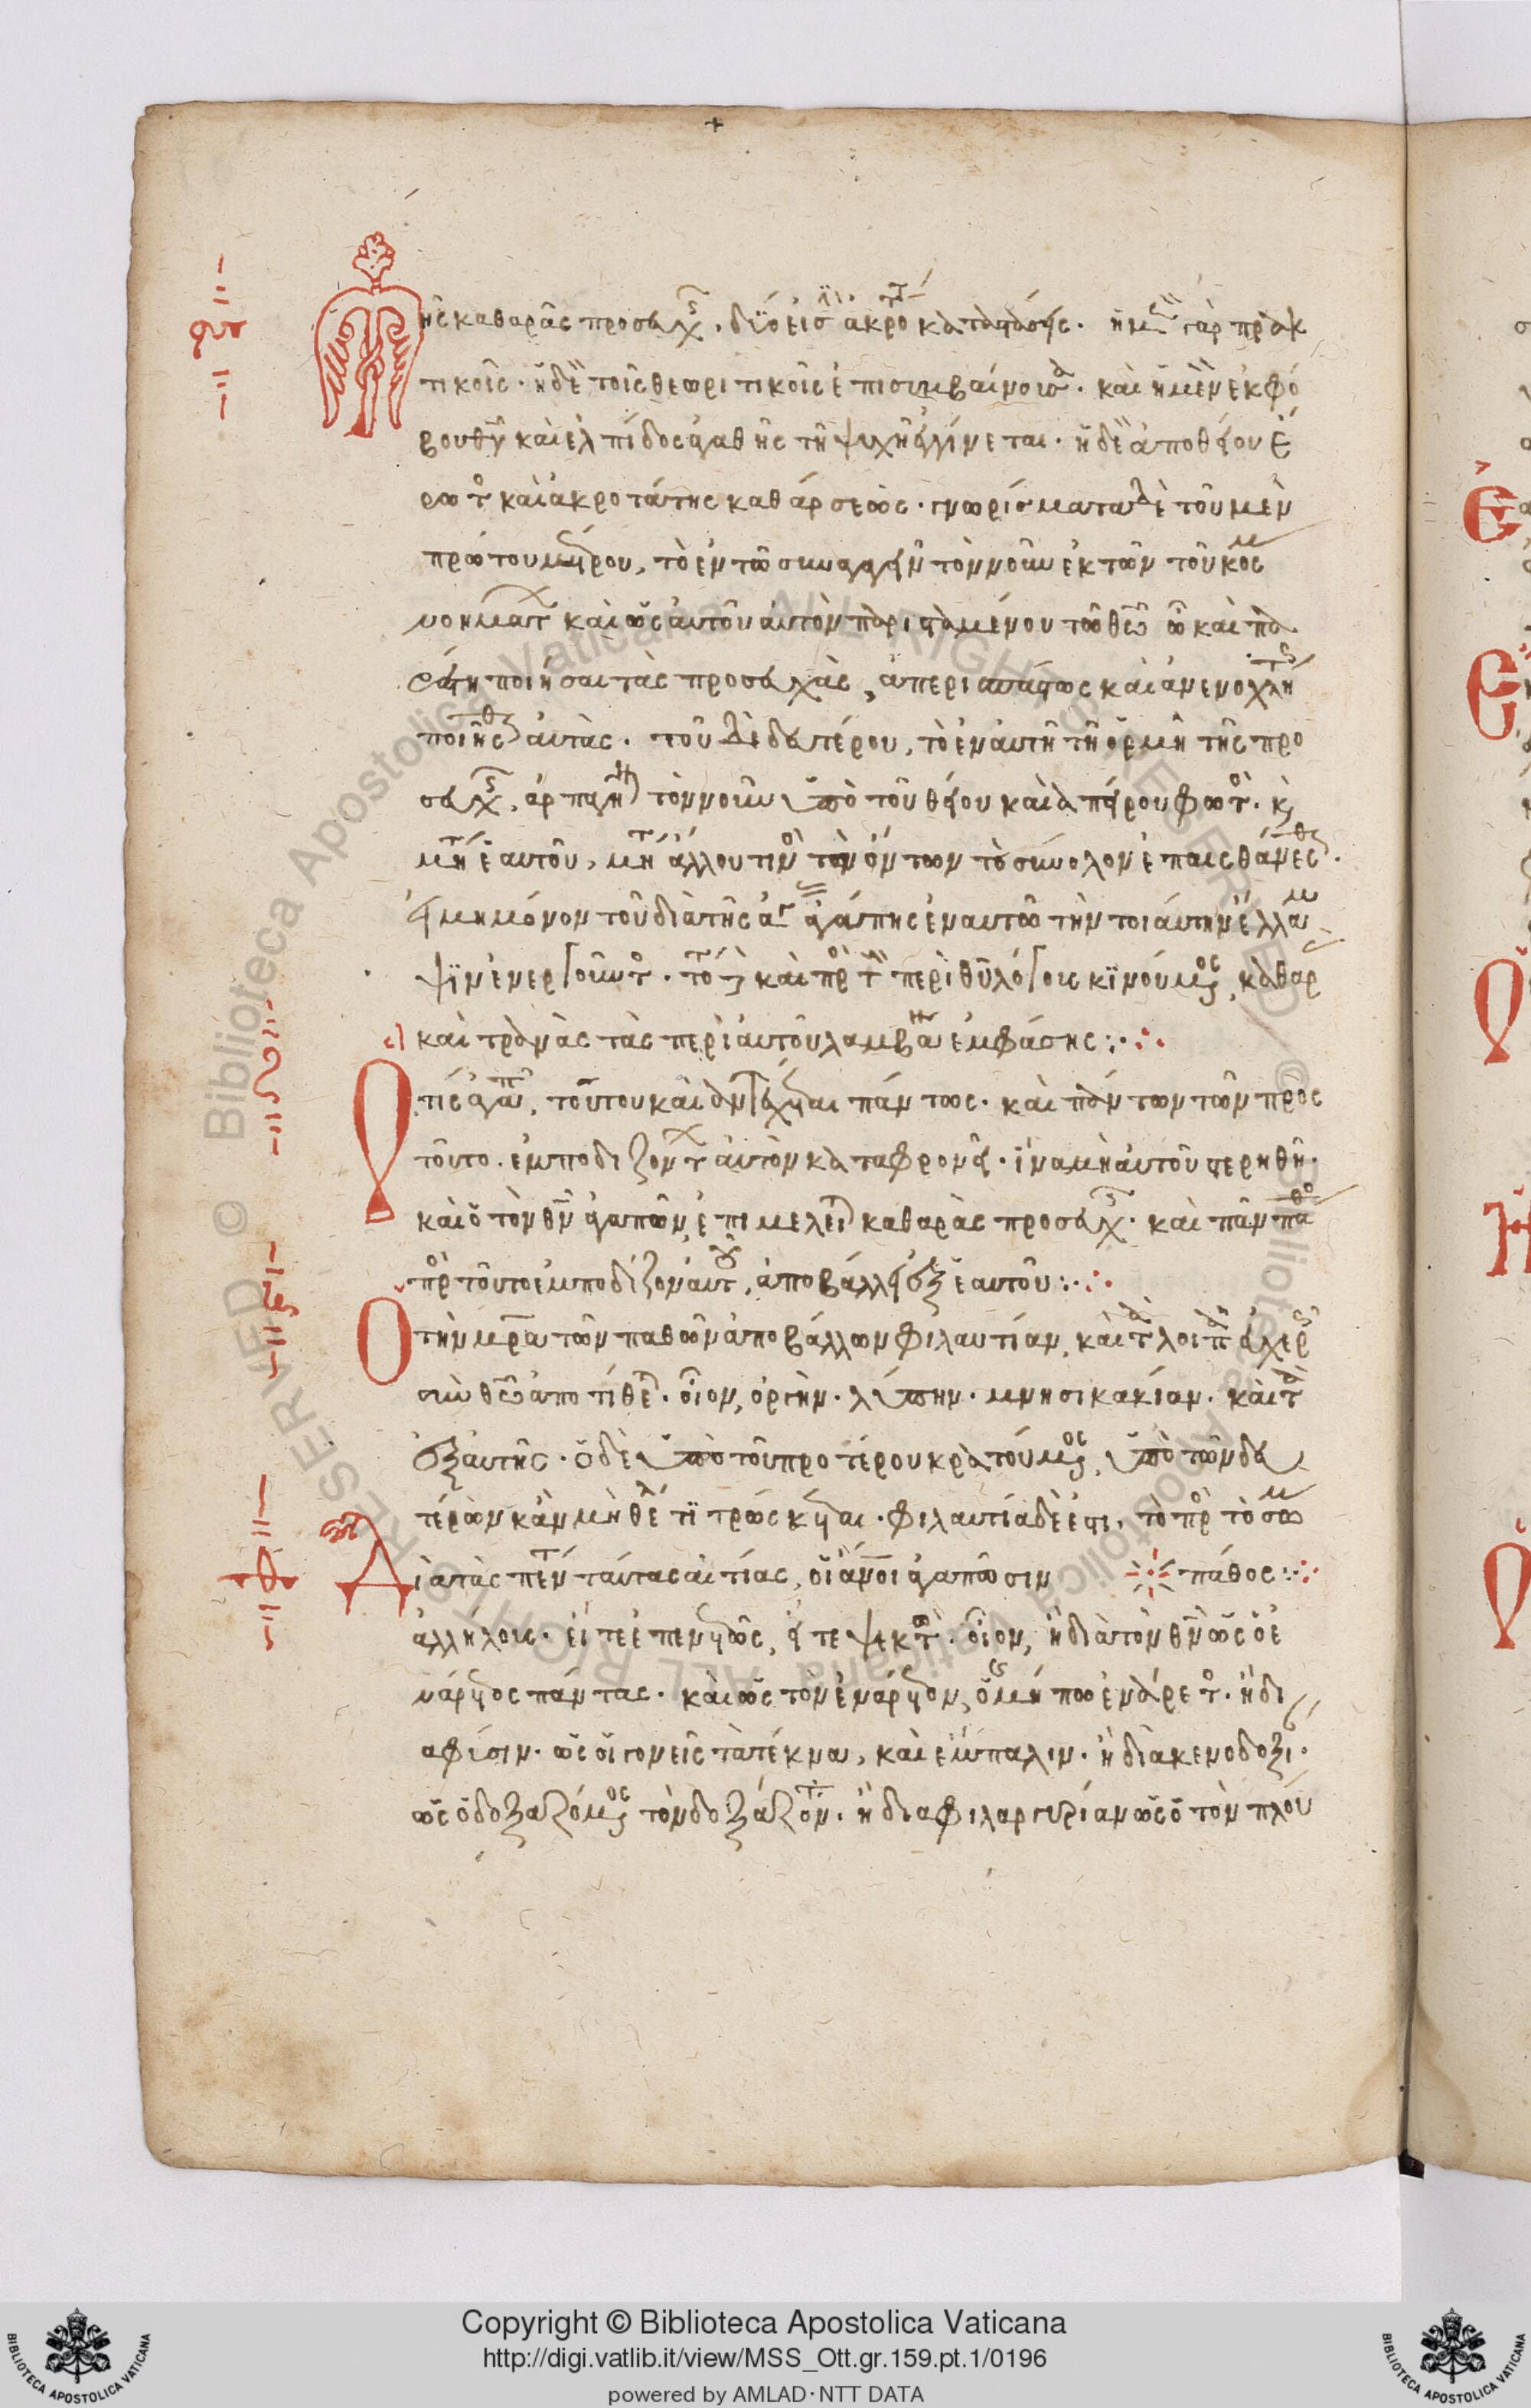 Τῆς καθαρᾶς προσευχῆς, δύο εἰσὶν ἀκρόταται καταστάσεις. ἡ μὲν γὰρ πρακ
τικοῖς. ἡ δὲ τοῖς θεωρητικοῖς ἐπισυμβαίνουσα. καὶ ἡ μὲν ἐκ φό
βου θυ καὶ ἐλπίδος ἀγαθῆς τῇ ψυχῇ ἐγγίνεται. ἡ δὲ ἀπὸ θείου ἔ
ρωτος καὶ ἀκροτάτης καθάρσεως. γνωρίσματα δὲ τοῦ μὲν
πρώτου μέτρου, τὸ ἐν τῶ συναγαγεῖν τὸν νοῦν ἐκ τῶν τοῦ κόσμου
νοημάτων καὶ ὡς αὐτοῦ αὐτὸν παρισταμένου τῶ θεῶ ὧ καὶ πα
ρέστη ποιῆσαι τὰς προσευχὰς, ἀπερισπάστως καὶ ἀνενοχλήτως
ποιεῖσθαι αὐτάς. τοῦ δὲ δευτέρου, τὸ ἐν αὐτῇ τῇ ὁρμῇ τῆς προ
σευχῆς, ἁρπαγῆναι τὸν νοῦν ὑπὸ τοῦ θείου καὶ ἀπείρου φωτός. καὶ
μήτε ἑαυτοῦ, μήτε ἄλλου τινὸς τῶν ὄντων τὸ σύνολον ἐπαισθάνεσθαι.
εἰ μὴ μόνου τοῦ διὰ τῆς ἀγάπης ἐν αὐτῶ τὴν τοιαύτην ἔλλαμ
ψιν ἐνεργοῦντος. τότε δὲ καὶ πρὸς τοὺς περὶ θυ λόγους κινούμενος, καθαρὰς
καὶ τρανὰς τὰς περὶ αὐτοῦ λαμβάνει ἐμφάσεις:
Ὅ τις ἀγαπᾶ, τούτου καὶ ἀντέχεται πάντως. καὶ πάντων τῶν πρὸς
τοῦτο ἐμποδιζόντων αὐτὸν καταφρονεῖ. ἵνα μὴ αὐτοῦ στερηθῇ.
καὶ ὁ τὸν θν ἀγαπῶν, ἐπιμελεῖται καθαρᾶς προσευχῆς. καὶ πᾶν πάθος
πρὸς τοῦτο ἐμποδίζον αὐτὸν, ἀποβάλλει ἐξ ἑαυτοῦ:
Ὁ τὴν μρα τῶν παθῶν ἀποβάλλων φιλαυτίαν, καὶ τὰ λοιπὰ εὐχερῶς
σὺν θεῶ ἀποτίθεται. οἷον, ὀργὴν. λύπην. μνησικακίαν. καὶ τὰ
ἐξ αὐτῆς. ὁ δὲ ὑπὸ τοῦ προτέρου κρατούμενος, ὑπὸ τῶν δευ
τέρων κἂν μὴ θέλει τιτρώσκεται. φιλαυτία δέ ἐστι, τὸ πρὸς τὸ σῶμα
Διὰ τὰς πέντε ταύτας αἰτίας, οἱ ανοι ἀγαπῶσιν πάθος:
ἀλλήλους. εἴτε ἐπαινετῶς, εἴτε ψεκτῶς. οἷον, ἢ διὰ τὸν θν ὡς ὁ ἐ
νάρετος πάντας. καὶ ὡς τὸν ἐνάρετον, ὁ μήπω ἐνάρετος. ἢ διὰ
φύσιν. ὡς οἱ γονεῖς τὰ τέκνα, καὶ ἔμπαλιν. ἢ διὰ κενοδοξίαν.
ὡς ὁ δοξαζόμενος τὸν δοξάζοντα. ἢ διὰ φιλαργυρίαν ὡς ὁ τὸν πλού
Copyright © Biblioteca Apostolica Vaticana
http://digi.vatlib.it/view/MSS_Ott.gr.159.pt.1/0196
powered by AMLAD·NTT DATA